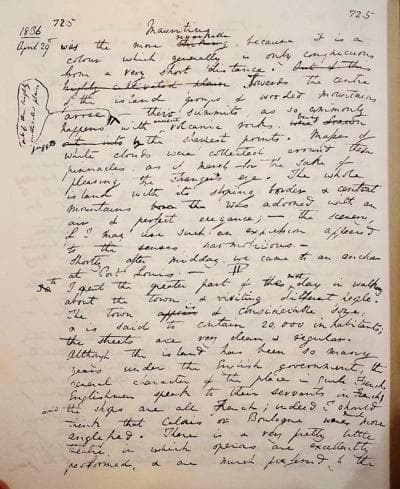 725
725
1836
Mauritius
April 29th was the more remarkable because it is a
colour which generally is only conspicuous
from a very short distance. But of the
highly cultivated plain Towards the centre
of the island groups of wooded mountains
arose their summits as so commonly
happens with volcanic rocks being
the sharpest points. Masses of
white clouds were collected around these
pinnacles, as if for the sake of
pleasing the stranger's eye. The whole
island with its sloping border & central
mountains was adorned with an
air of perfect elegance; — the scenery,
if I may use such an expression appeared
to the senses harmonious. —
Shortly after midday we came to an anchor
at Port Louis. —
I spent the greater part of the next day in walking
about the town & visiting different people.
The town of considerable size,
& is said to contain 20,000 inhabitants;
the streets are very clean & regular.
Although the island has been so many
years under the English government, the
general character of the place is quite French;
Englishmen speak to their servants in French,
and the shops are all French; indeed I should
think that Calais or Boulogne was much more
anglefied. There is a very pretty little
theatre, in which operas are excellently
performed, & are much preferred to the